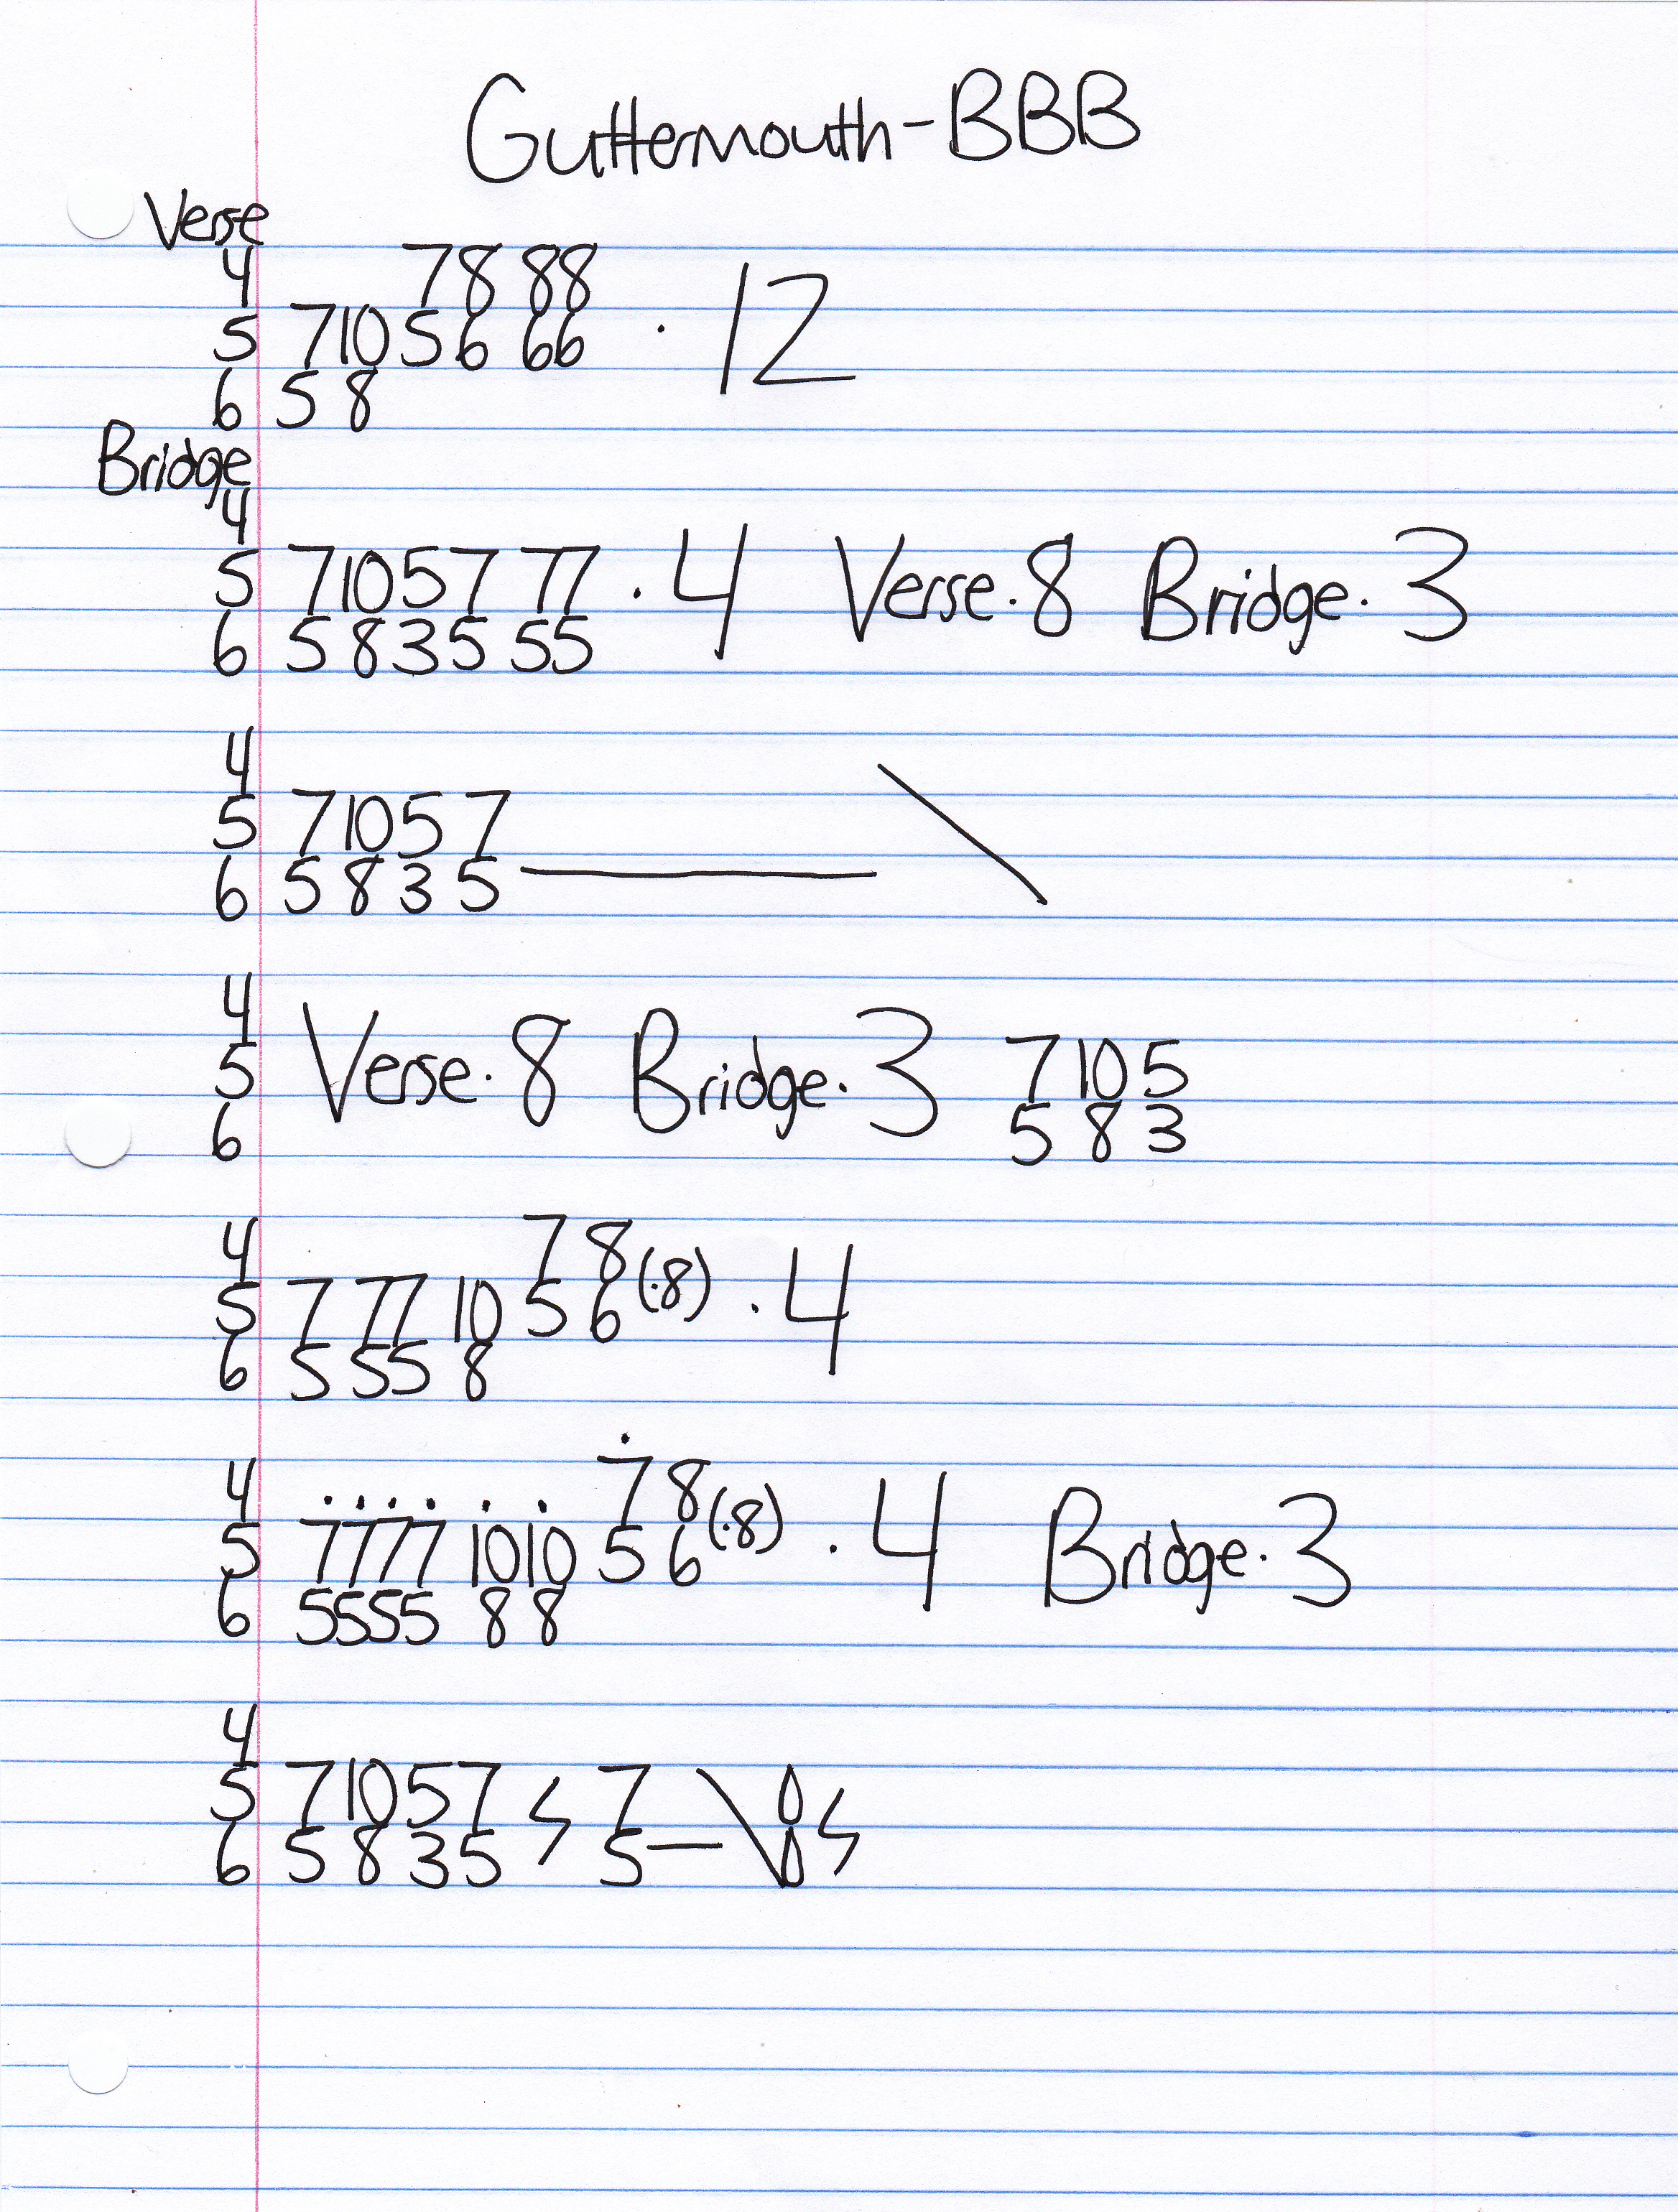 Guttermouth-BBB
Verse
4 7 8 88
5 7 10 5 6 66 · 12
6 5 8
Bridge
4
5 7 10 5 7 77 · 4 Verse·8 Bridge·3
6 5 8 3 5 55
4
5 7 10 5 7
6 5 8 3 5
4
5 Verse·8 Bridge·3 7 10 5
6 5 8 3
4 7 8
5 7 77 10 5 6 (·8) · 4
6 5 55 8
4 7 8
5 7777 1010 5 6 (·8) · 4 Bridge·3
6 5555 88
4
5 7 10 5 7 7
6 5 8 3 5 5